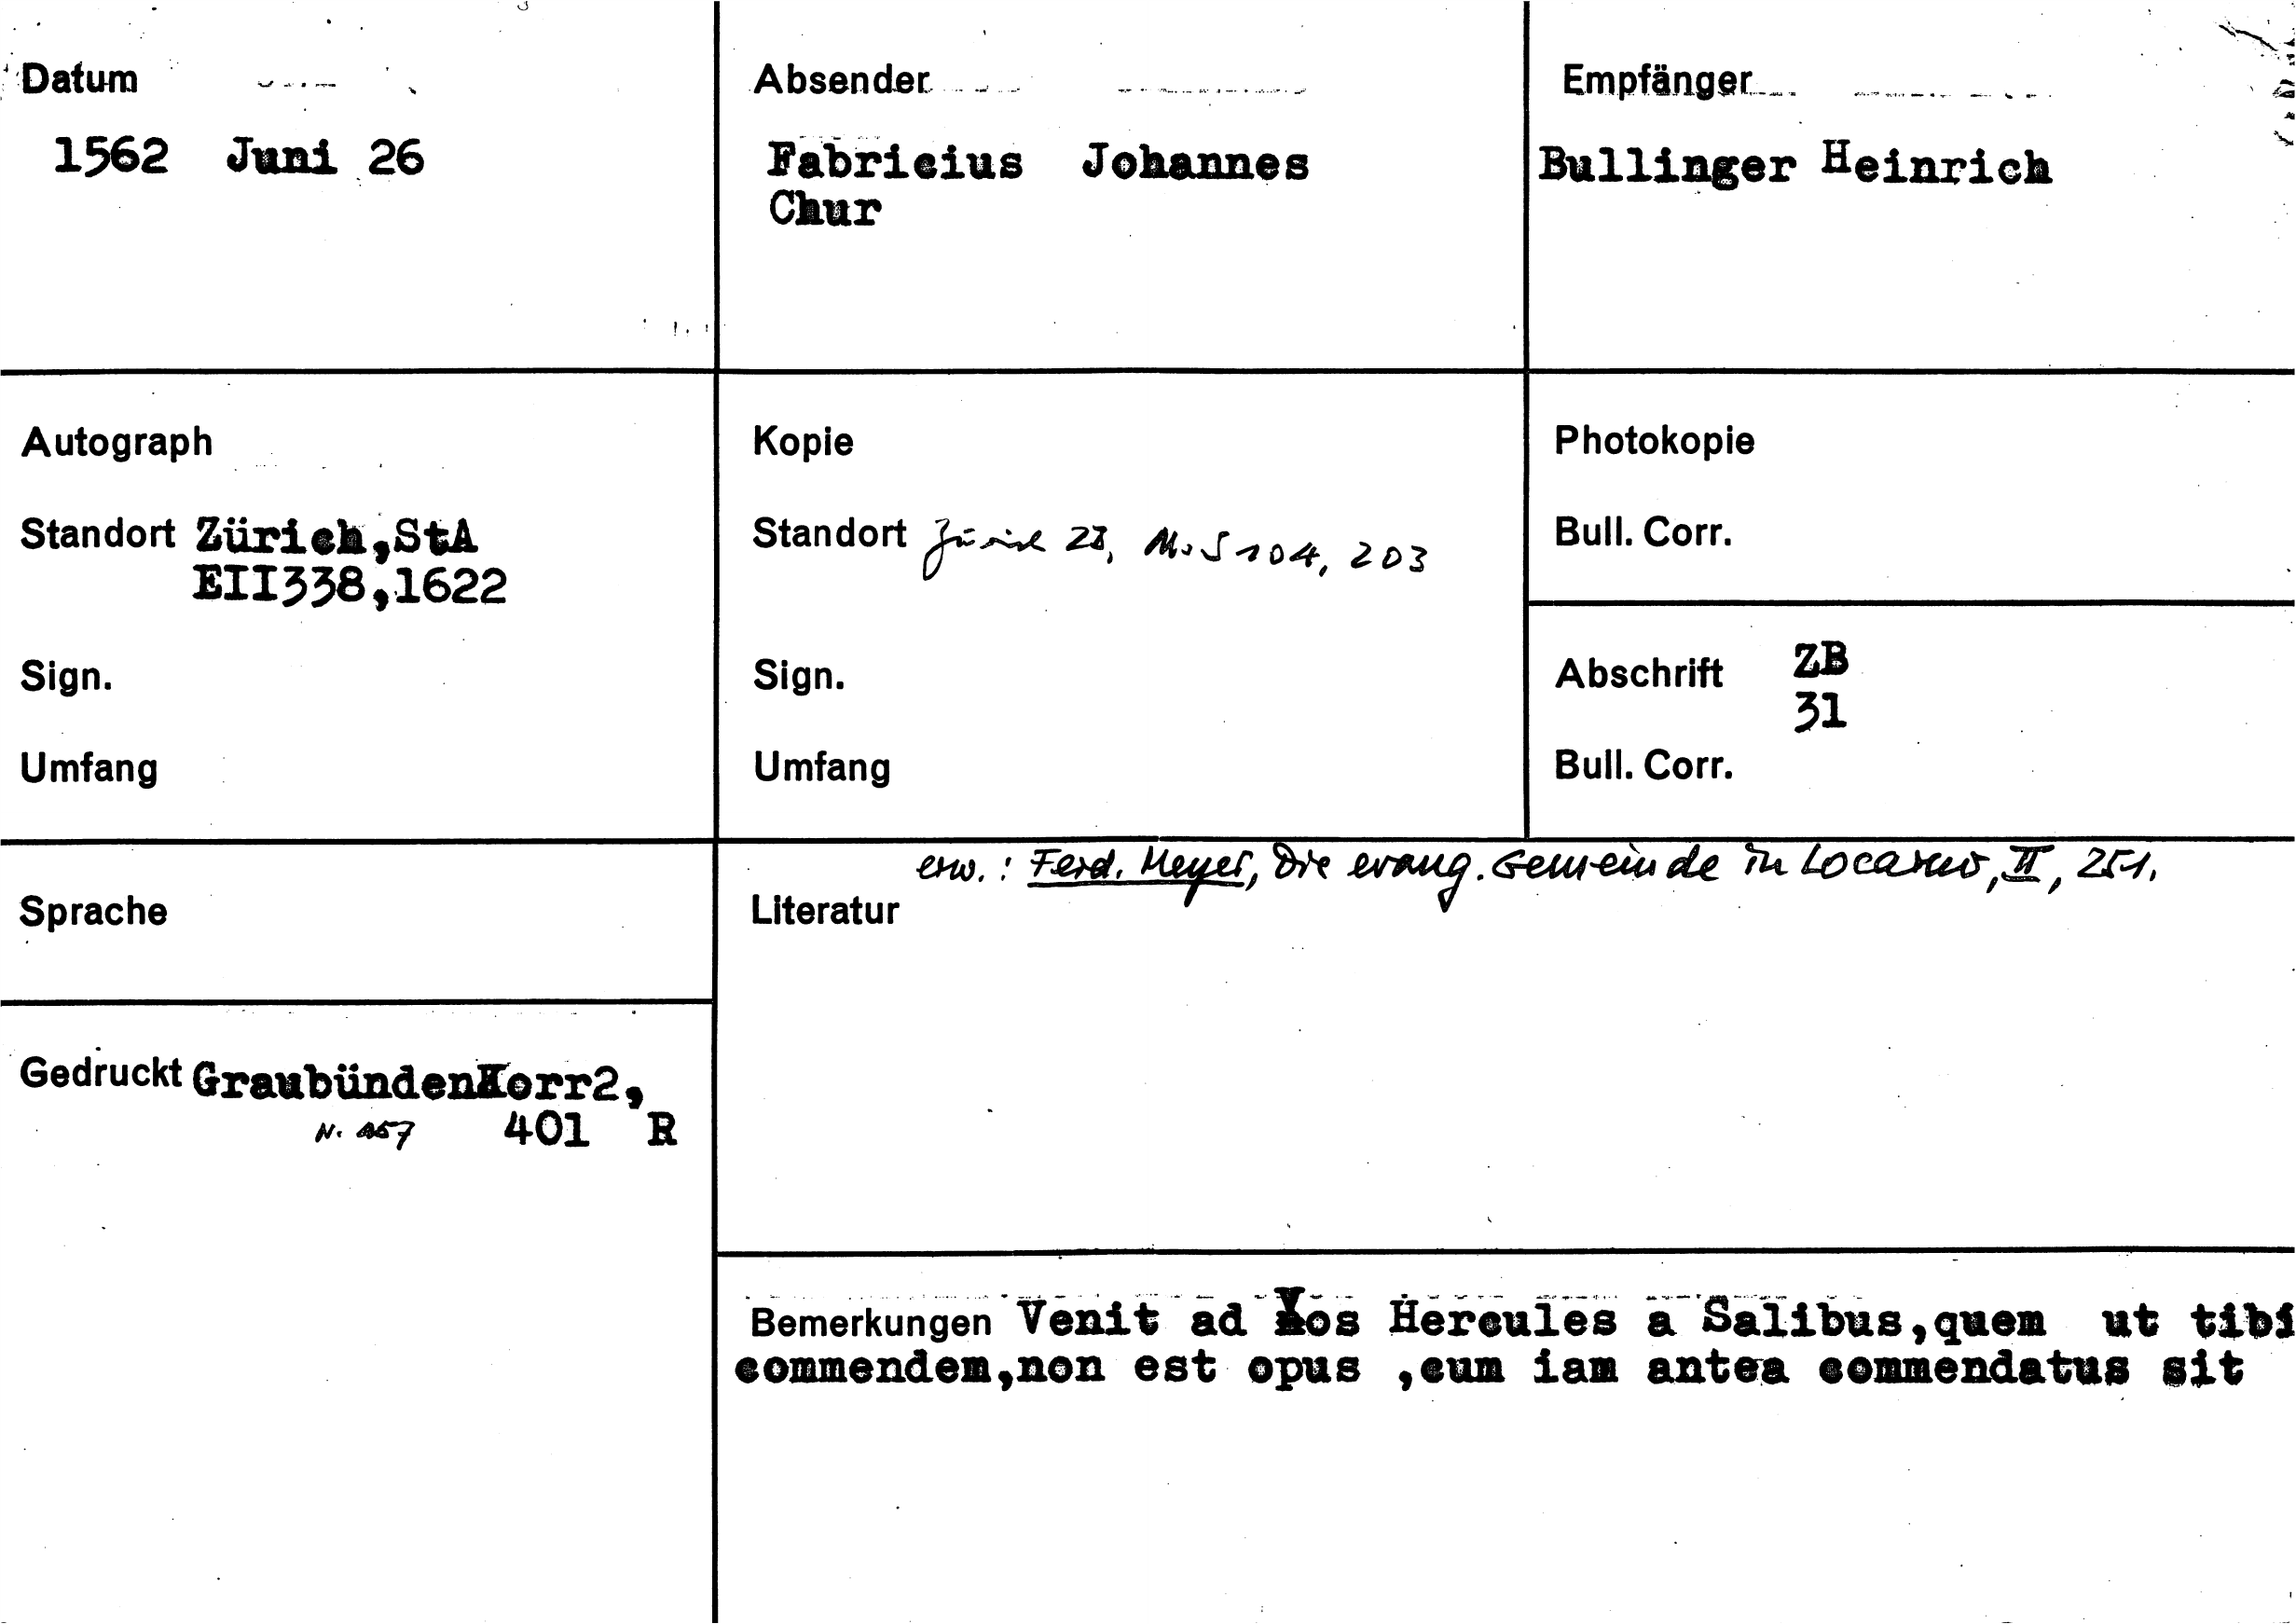 Datum
1562 Juni 26
Absender
Fabricius Johannes
Chur
Empfänger
Bullinger Heinrich
Autograph
Standort Zürich,StA
EII338,1622
Sign.
Umfang
Kopie
Standort Zürich ZB, Ms S 104, 203
Sign.
Umfang
Photokopie
Bull. Corr.
Abschrift ZB
31
Bull. Corr.
Sprache
Gedruckt GraubündenKorr2,
401 R
erw.: Ferd. Meyer, Die evang. Gemeinde in Locarno, II, 251.
Literatur
Bemerkungen Venit ad Vos Hercules a Salibus,quem ut tibi
commendem,non est opus ,cum iam antea commendatus sit